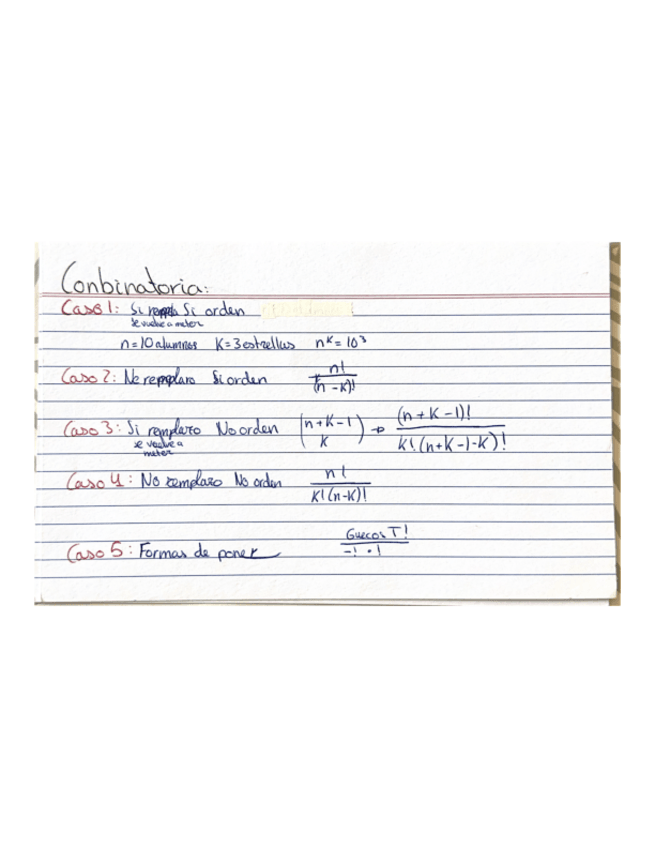 Conbinatoria:
Caso 1: Si Si orden
se vuelve a meter
n=10 alumnos K=3 estrellas n^K = 10^3
Caso 2: No remplazo Si orden n! / (n-K)!
Caso 3: Si remplazo No orden (n+K-1 / K) → (n+K-1)! / K!(n+K-1-K)!
se vuelve a
meter
Caso 4: No remplazo No orden n! / K!(n-K)!
Caso 5: Formas de poner Guecos T! / -! •!